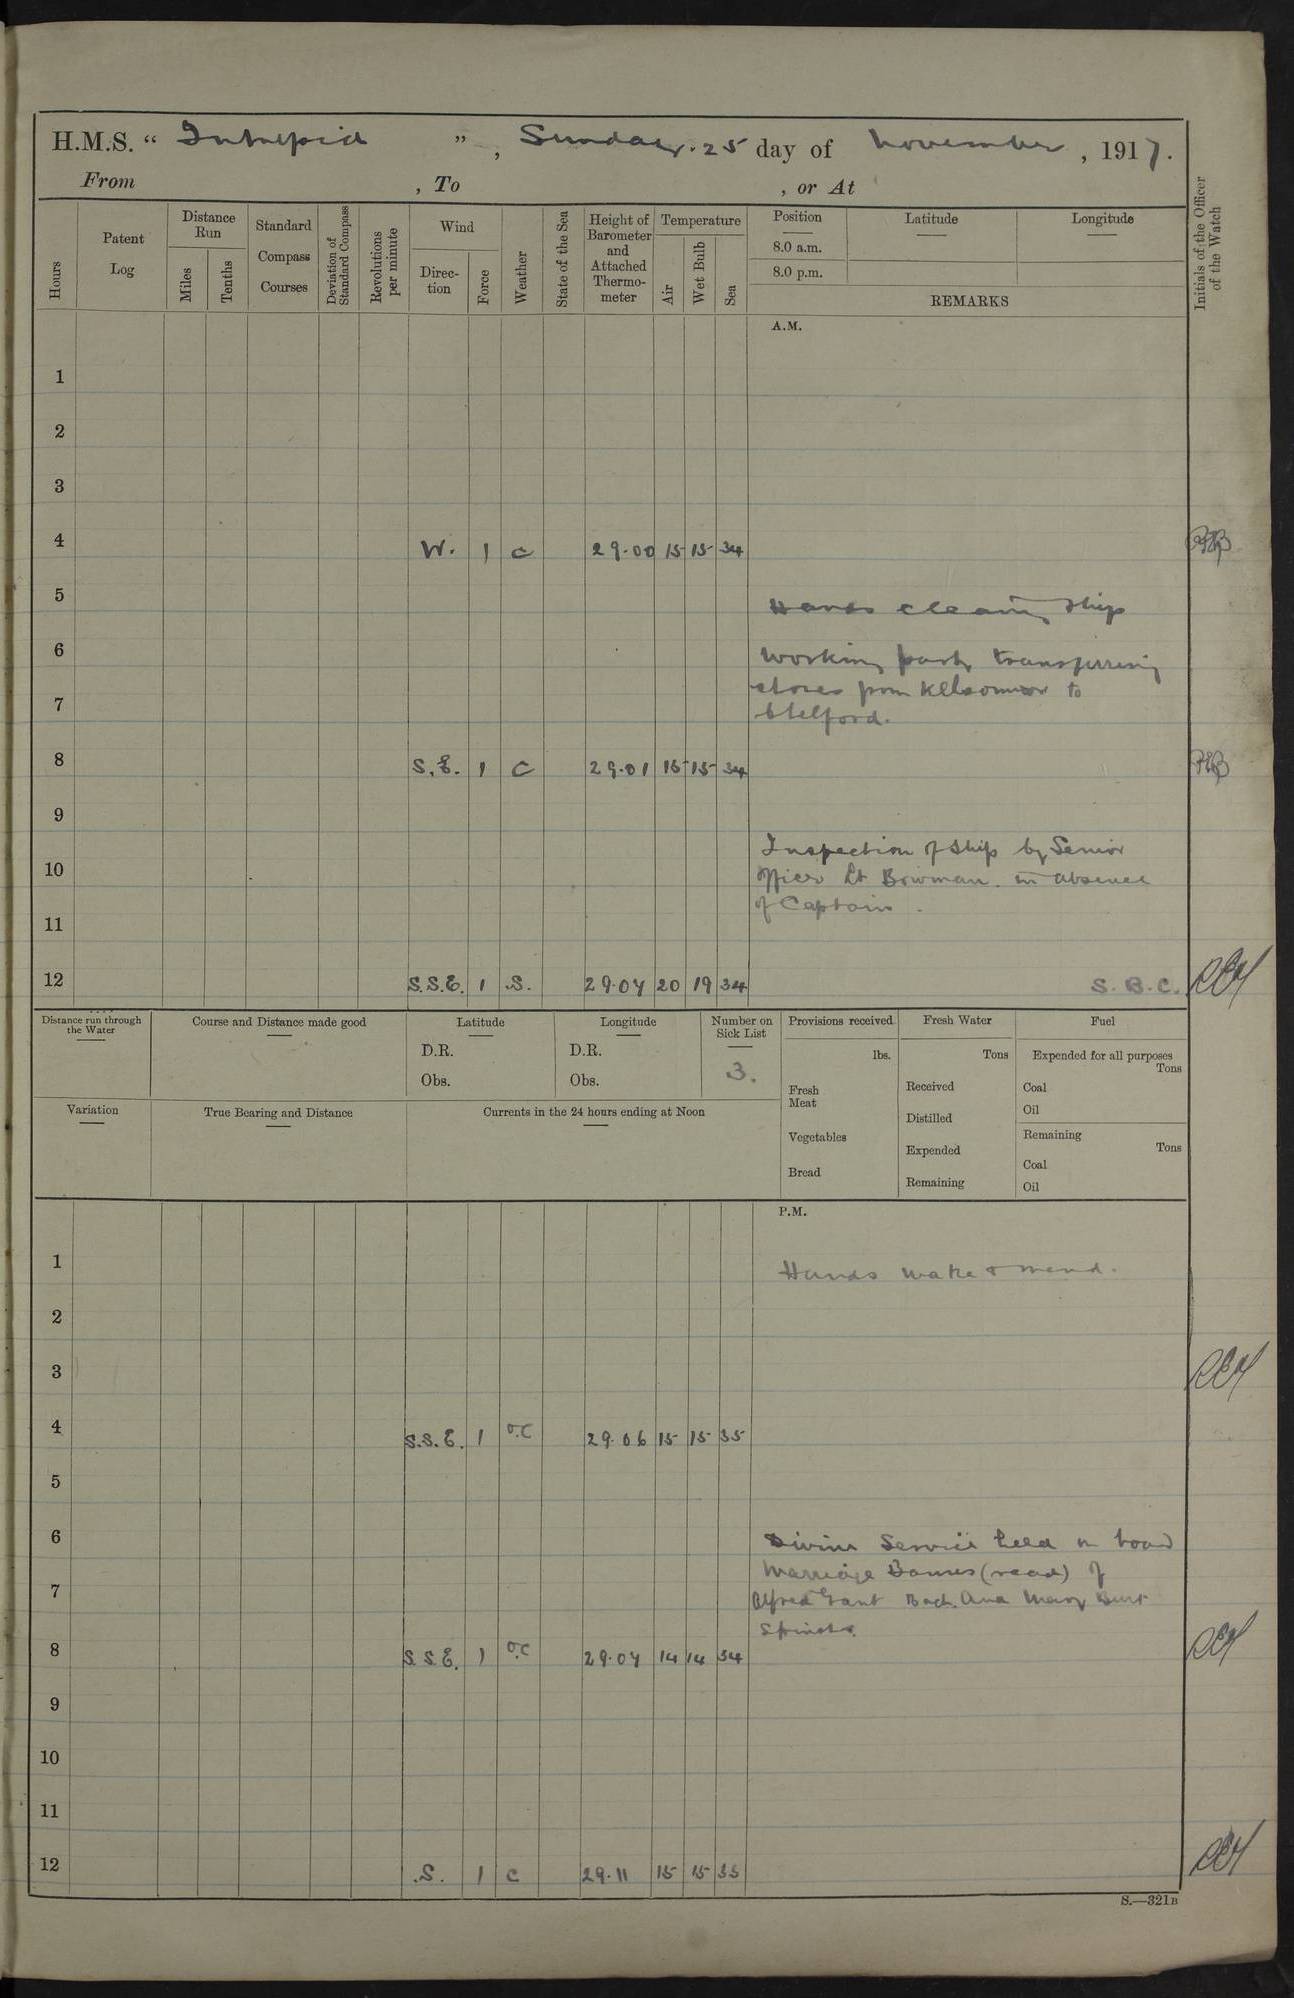 H.M.S. “ Intrepid ” , Sunday. 25 day of November , 1917.
From , To , or At
Hours
Patent Log
Distance Run
Miles
Tenths
Standard Compass Courses
Deviation of Standard Compass
Revolutions per minute
Wind
Direction
Force
Weather
State of the Sea
Height of Barometer and Attached Thermometer
Temperature
Air
Wet Bulb
Sea
Position
8.0 a.m.
8.0 p.m.
Latitude
Longitude
REMARKS
Initials of the Officer of the Watch
A.M.
1
2
3
4 W. 1 c 29.00 15 15 34
5 Hands cleaning ship
6 Working party transferring
7 stores from to
Stelford.
8 S.E. 1 C 29.01 15 15 34
9
Inspection of Ship by Senior
10 Officer Lt Bowman. in absence
of Captain.
11
12 S.S.E. 1 .S. 29.04 20 19 34 S.B.C.
Distance run through the Water
Course and Distance made good
Latitude
D.R.
Obs.
Longitude
D.R.
Obs.
Number on Sick List
3.
Provisions received.
lbs.
Fresh Meat
Vegetables
Bread
Fresh Water
Tons
Received
Distilled
Expended
Remaining
Fuel
Expended for all purposes
Tons
Coal
Oil
Remaining
Tons
Coal
Oil
Variation
True Bearing and Distance
Currents in the 24 hours ending at Noon
P.M.
1 Hands make & mend.
2
3
4 S.S.E. 1 o.c 29.06 15 15 35
5
6 Divine Service held on board
Marriage Banns (read) of
7 Alfred Grant Bach. and Mary Burt
Spinster.
8 S.S.E. 1 o.c 29.04 14 14 34
9
10
11
12 .S. 1 c 29.11 15 15 35
S.—321B